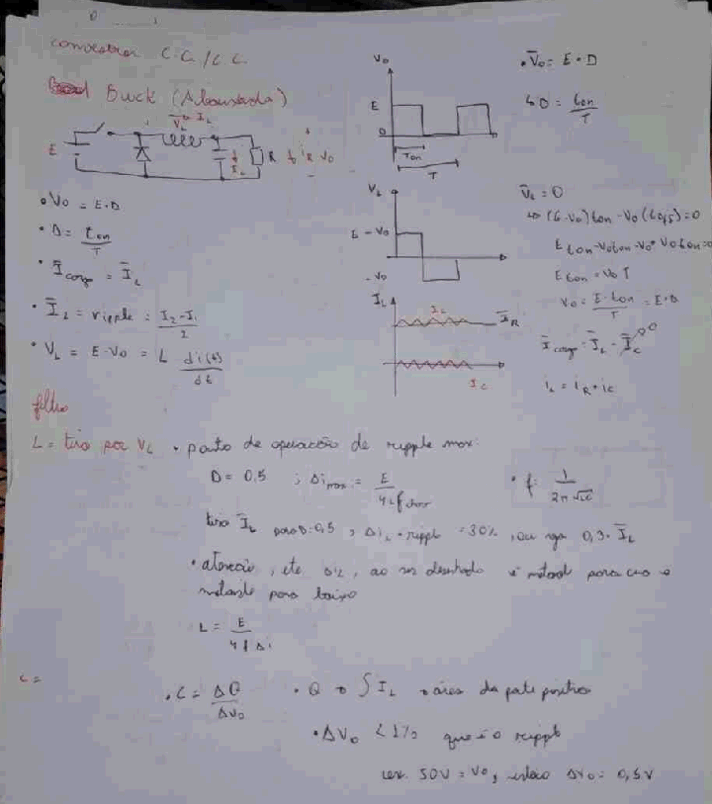 conversor C.C./C.C.
Buck (Abaixada)
V_L I_L
E R i_R V_0
I_L
• V_0 = E·D
• D = t_on / T
• Ī_carga = Ī_L
• Ī_L = ripple = (I_2 - I_1) / 2
• V_L = E - V_0 = L di(t) / dt
V_0
E
0
T_on
T
V_L
E - V_0
- V_0
I_L
I_L Ī_R
I_C
• V̄_0 = E·D
↳ D = t_on / T
V̄_L = 0
↳ (E - V_0) t_on - V_0 (t_off) = 0
E t_on = V_0 T
V_0 = E·t_on / T = E·D
Ī_carga = Ī_L - Ī_C 0
i_L = i_R + i_C
filtro
L = tiro por V_L • ponto de operação de ripple max:
D = 0,5 ; Δi_max = E / 4Lf
• f = 1 / 2π√LC
tiro Ī_L para D=0,5 , Δi_L = ripple = 30% , ou seja 0,3·Ī_L
• atenção, este Δi_L, ao ser desenhado é metade para cima e
metade para baixo
L = E / 4fΔi
C =
• C = ΔQ / ΔV_0 • Q → ∫I_L → área da parte positiva
• ΔV_0 < 1% que é o ripple
ex. 50V = V_0, então ΔV_0 = 0,5V